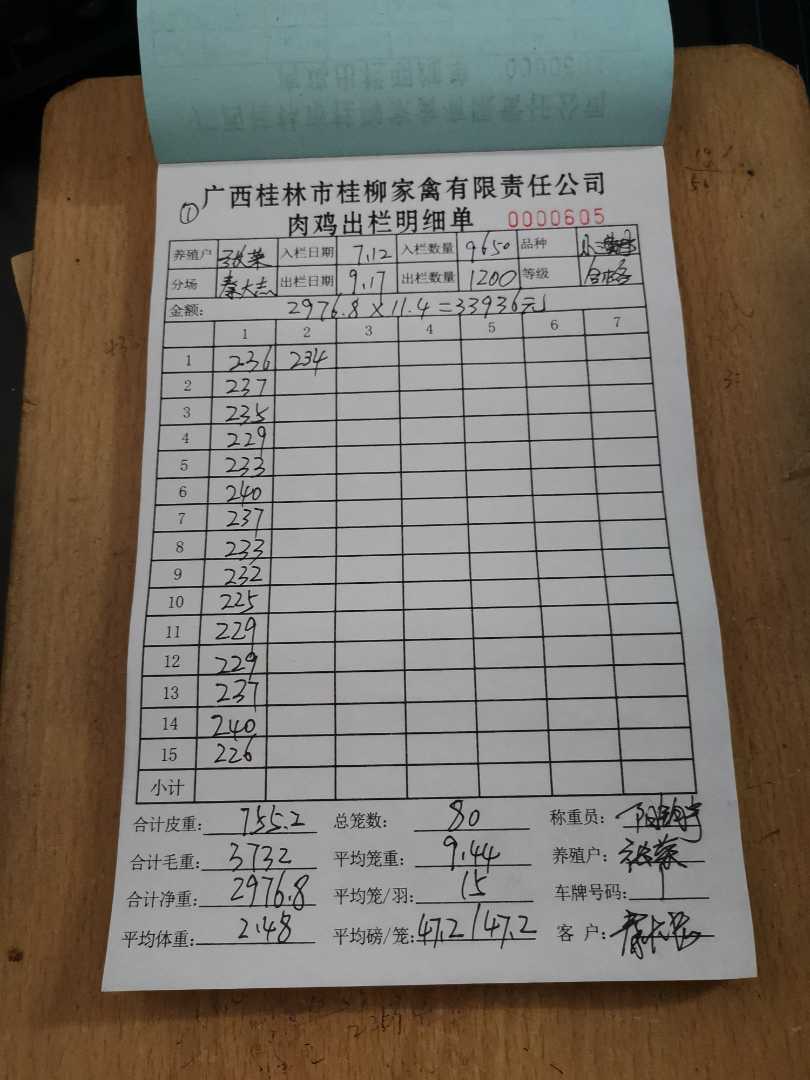 ① 广西桂林市桂柳家禽有限责任公司
肉鸡出栏明细单 0000605
养殖户 张荣 入栏日期 7.12 入栏数量 9650 品种
分场 秦大志 出栏日期 9.17 出栏数量 1200 等级 合格
金额: 2976.8×11.4=33936元
1 2 3 4 5 6 7
1 236 234
2 237
3 235
4 229
5 233
6 240
7 237
8 233
9 232
10 225
11 229
12 229
13 237
14 240
15 226
小计
合计皮重: 755.2 总笼数: 80 称重员:
合计毛重: 3732 平均笼重: 9.44 养殖户: 张荣
合计净重: 2976.8 平均笼/羽: 15 车牌号码:
平均体重: 2.48 平均磅/笼: 47.2/47.2 客 户: